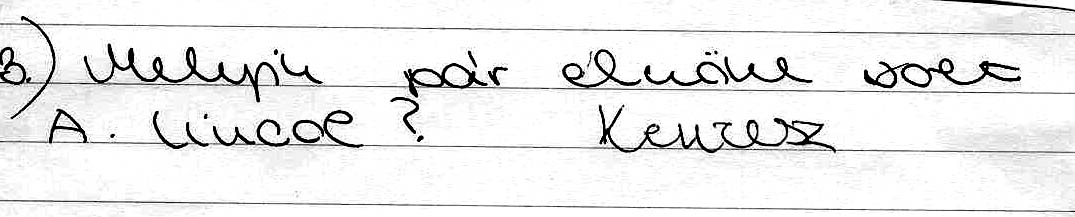 3.) Melyik pár elnöke volt
A. Lincol? Kentesz